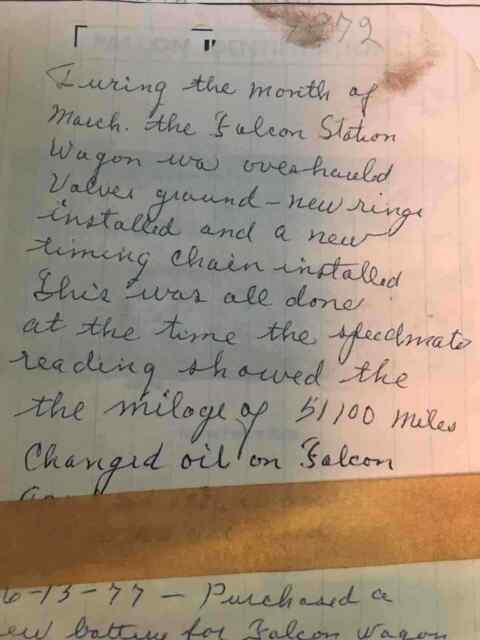 1972
During the month of
March. the Falcon Station
Wagon was overhauled
Valves ground - new rings
installed and a new
timing chain installed
This was all done
at the time the speedmato
reading showed the
the milage of 51100 miles
Changed oil on Falcon
6-13-77 - Purchased a
new battery for Falcon Wagon